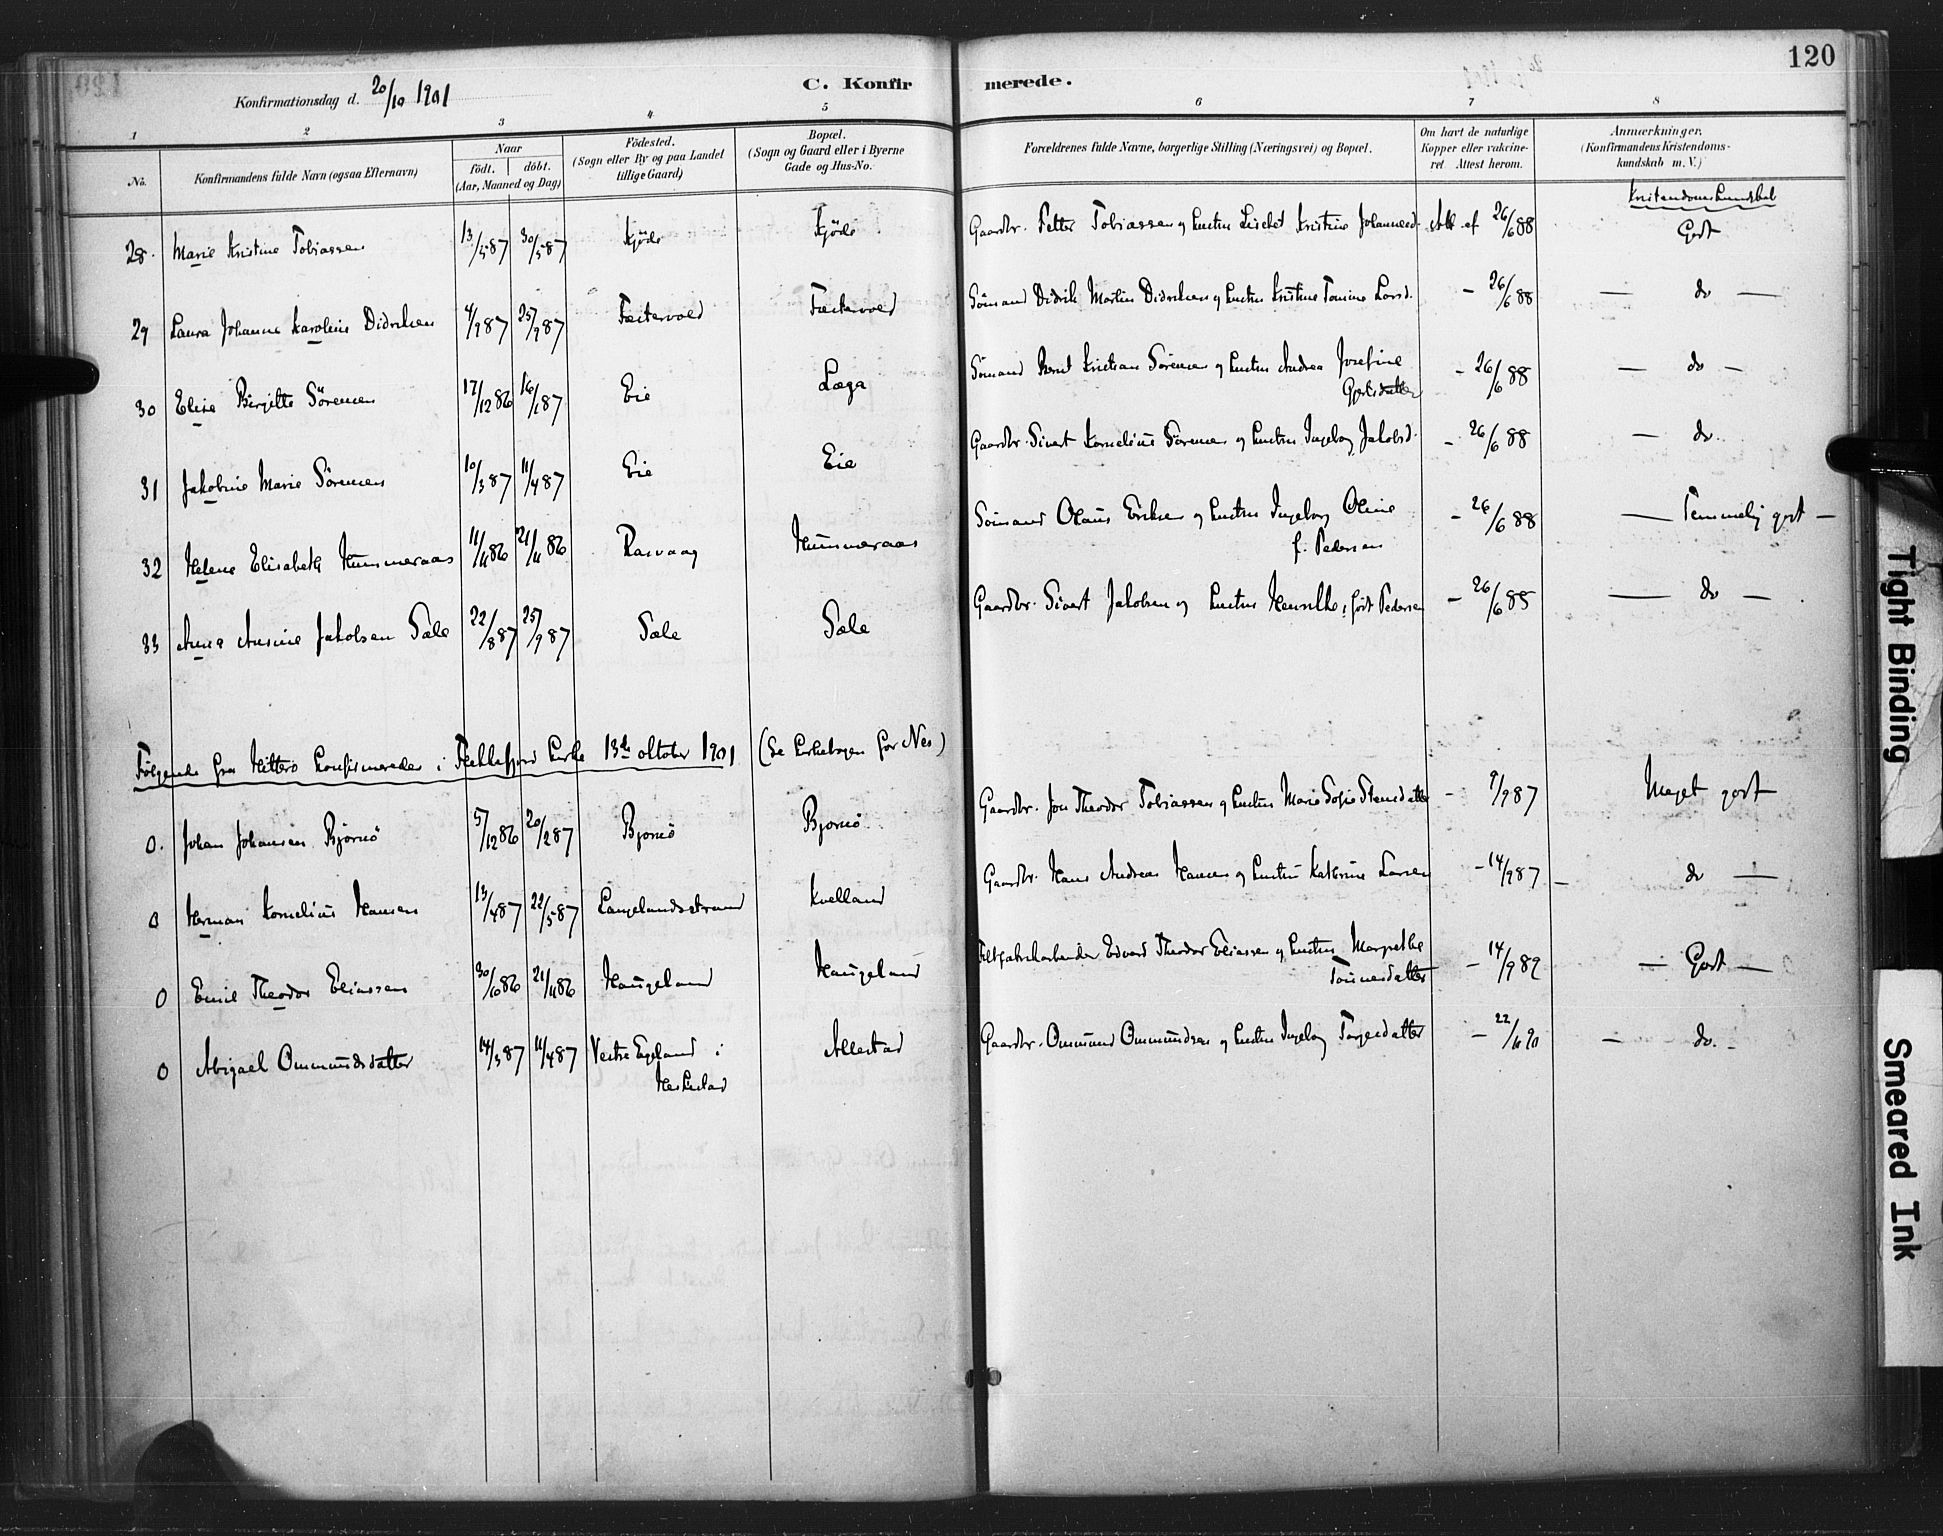 120
C. Konfirmerede.
Konfirmationsdag d. 20/10 1901
1 2 3 4 5 6 7 8
No. Konfirmandens fulde Navn (ogsaa Efternavn) Naar födt. döbt. (Aar, Maaned og Dag) Födested. (Sogn eller By og paa Landet tillige Gaard) Bopæl. (Sogn og Gaard eller i Byerne Gade og Hus-No. Forældrenes fulde Navne, borgerlige Stilling (Næringsvei) og Bopæl. Om havt de naturlige Kopper eller vaksineret Attest herom. Anmærkninger. (Konfirmandens Kristendomskundskab m. V.)
Kristendomskundskab
28. Marie Kristine Tobiassen 13/5 87 30/5 87 Kjöde Kjöde Gaardbr. Petter Tobiassen og hustru Lisebet Kristine Johannesd. Att. af 26/6 88 Godt
29 Laura Johanne Karoline Didriksen 4/9 87 25/9 87 Fæitevold Fæitevold Sömand Didrik Martin Didriksen og hustru Kristine Tomine Larsd. - 26/6 88 — do —
30 Elise Birgitte Sörensen 17/12 86 16/1 87 Eie Læga Sömand Bernt Kristian Sörensen og hustru Andrea Josefine - 26/6 88 — do —
Gjertsdatter
31 Jakobine Marie Sörensen 10/3 87 11/4 87 Eie Eie Gaardbr. Sivert Kornelius Sörensen og hustru Ingeborg Jakobsd. - 26/6 88 — do.
32 Helene Elisabeth Hummeraas 11/11 86 21/11 86 Rasvaag Hummeraas Sömand Olaus Eriksen og hustru Ingeborg Oline - 26/6 88 — Temmelig godt —
f. Pedersen
33 Anna Ansine Jakobsen Sæle 22/8 87 25/9 87 Sæle Sæle Gaardbr. Sivert Jakobsen og hustru Henrikke, født Pedersen - 26/6 88 — do —
Følgende fra Hitterö konfirmeredes i Flekkefjord Kirke 13de oktober 1901 (Se Kirkebogen for Nes)
0. Johan Johansen Bjørnö 5/12 86 20/2 87 Bjørnö Bjørnö Gaardbr. Jon Theodor Tobiassen og hustru Marie Sofie Stensdatter - 9/9 87 Meget godt
0 Herman Kornelius Hansen 13/4 87 22/5 87 Langelandsstrand Kvelland Gaardbr. Hans Andreas Hansen og hustru Kathrine Larsen - 14/9 87 — do —
0 Emil Theodor Eliassen 30/10 86 21/11 86 Haugeland Haugeland Edvard Theodor Eliassen og hustru Margrethe - 14/9 89 — Godt —
Tönnesdatter
0 Abigael Ommundsdatter 14/3 87 11/4 87 Vestre Egeland i Allestad Gaardbr. Ommund Ommundsen og hustru Ingeborg Torgersdatter - 22/11 90 — do. —
Heskestad
Tight Binding
Smeared Ink